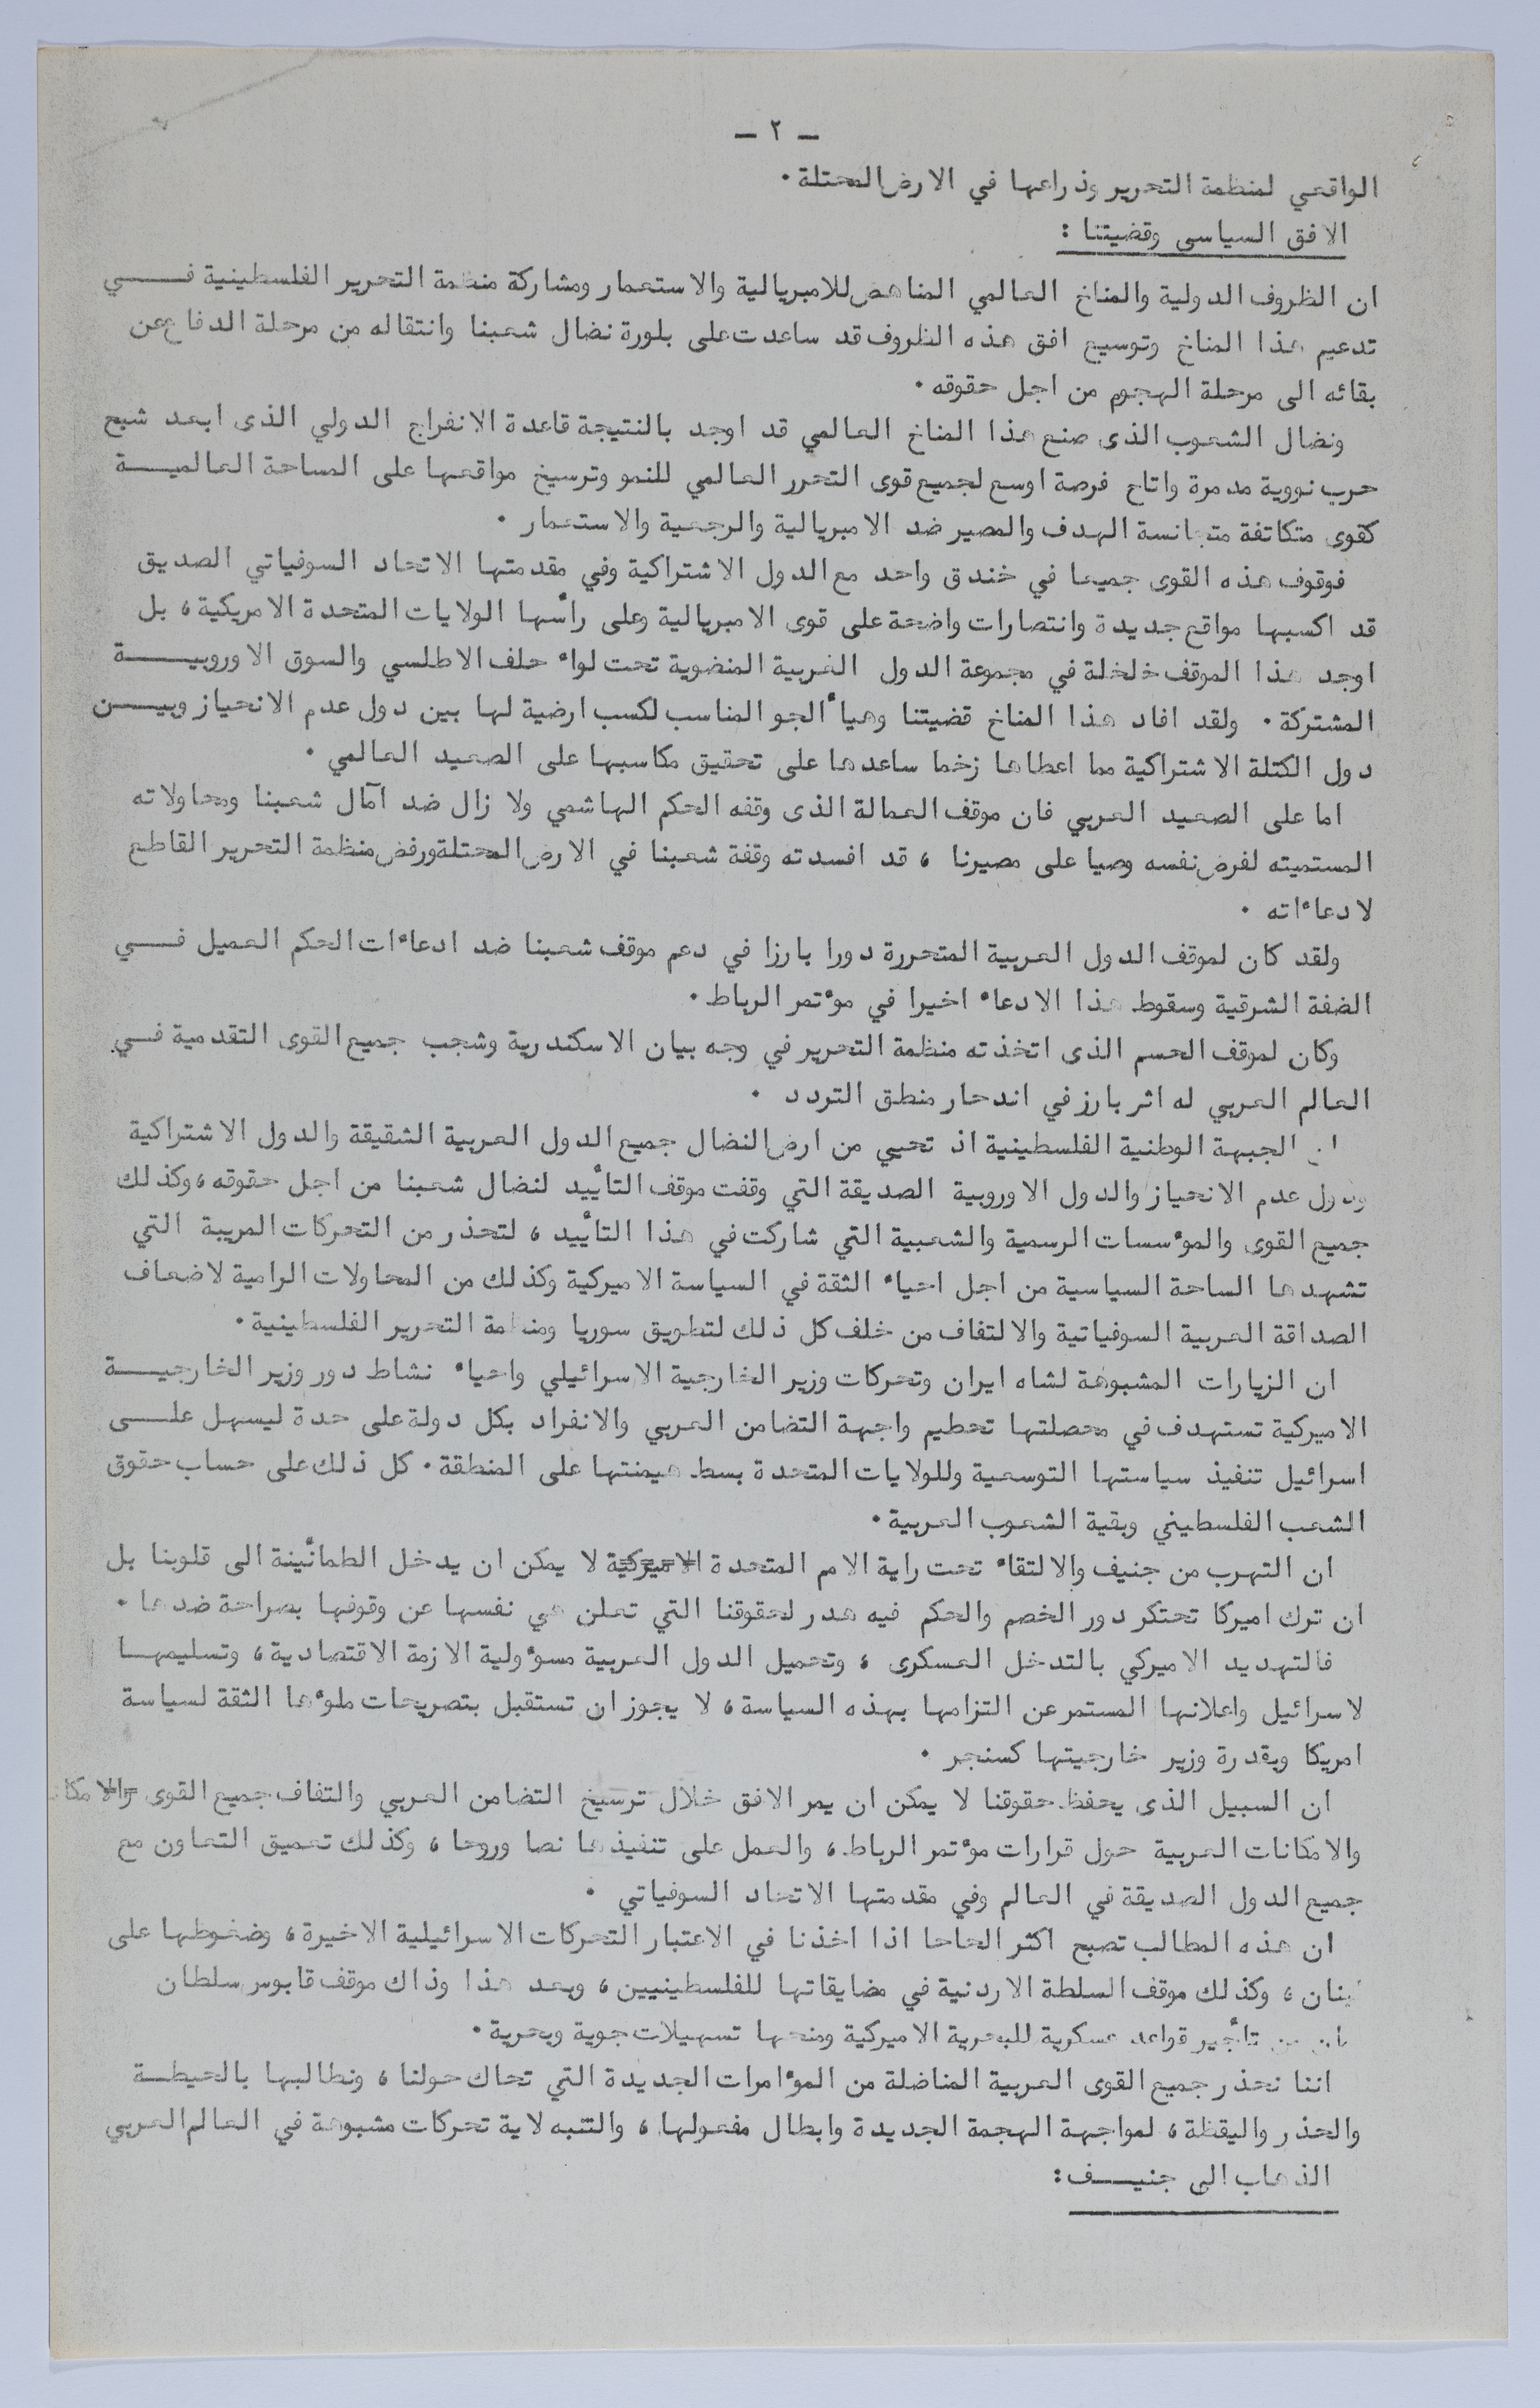 – ٢ –
الواقعي لمنظمة التحرير وذراعها في الارض المحتلة ٠
الافق السياسي وقضيتنا :
ان الظروف الدولية والمناخ العالمي المناهض للامبريالية والاستعمار ومشاركة منظمة التحرير الفلسطينية فـــــي
تدعيم هذا المناخ وتوسيع افق هذه الظروف قد ساعدت على بلورة نضال شعبنا وانتقاله من مرحلة الدفاع عن
بقائه الى مرحلة الهجوم من اجل حقوقه ٠
ونضال الشعوب الذى صنع هذا المناخ العالمي قد اوجد بالنتيجة قاعدة الانفراج الدولي الذى ابعد شبح
حرب نووية مدمرة واتاح فرصة اوسع لجميع قوى التحرر العالمي للنمو وترسيخ مواقعها على المساحة العالميـــــة
كقوى متكاتفة متجانسة الهدف والمصير ضد الامبريالية والرجعية والاستعمار ٠
فوقوف هذه القوى جميعا في خندق واحد مع الدول الاشتراكية وفي مقدمتها الاتحاد السوفياتي الصديق
قد اكسبها مواقع جديدة وانتصارات واضحة على قوى الامبريالية وعلى رأسها الولايات المتحدة الامريكية ، بل
اوجد هذا الموقف خلخلة في مجموعة الدول الغربية المنضوية تحت لواء حلف الاطلسي والسوق الاوروبيـــــة
المشتركة ٠ ولقد افاد هذا المناخ قضيتنا وهيأ الجو المناسب لكسب ارضية لها بين دول عدم الانحياز وبيـــن
دول الكتلة الاشتراكية مما اعطاها زخما ساعدها على تحقيق مكاسبها على الصعيد العالمي ٠
اما على الصعيد العربي فان موقف العمالة الذى وقفه الحكم الهاشمي ولا زال ضد امآل شعبنا ومحاولاته
المستميته لفرض نفسه وصيا على مصيرنا ، قد افسدته وقفة شعبنا في الارض المحتلة ورفض منظمة التحرير القاطع
لادعاءاته ٠
ولقد كان لموقف الدول العربية المتحررة دورا بارزا في دعم موقف شعبنا ضد ادعاءات الحكم العميل فـــــي
الضفة الشرقية وسقوط هذا الادعاء اخيرا في مؤتمر الرباط ٠
وكان لموقف الحسم الذى اتخذته منظمة التحرير في وجه بيان الاسكندرية وشجب جميع القوى التقدمية فــي
العالم العربي له اثر بارز في اندحار منطق التردد ٠
ان الجبهة الوطنية الفلسطينية اذ تحيي من ارض النضال جميع الدول العربية الشقيقة والدول الاشتراكية
ودول عدم الانحياز والدول الاوروبية الصديقة التي وقفت موقف التأييد لنضال شعبنا من اجل حقوقه ، وكذلك
جميع القوى والمؤسسات الرسمية والشعبية التي شاركت في هذا التأييد ، لتحذر من التحركات المريبة التي
تشهدها الساحة السياسية من اجل احياء الثقة في السياسة الاميركية وكذلك من المحاولات الرامية لاضعاف
الصداقة العربية السوفياتية والالتفاف من خلف كل ذلك لتطويق سوريا ومنظمة التحرير الفلسطينية ٠
ان الزيارات المشبوهة لشاه ايران وتحركات وزير الخارجية الاسرائيلي واحياء نشاط دور وزير الخارجيـــــة
الاميركية تستهدف في محصلتها تحطيم واجهة التضامن العربي والانفراد بكل دولة على حدة ليسهل علـــــى
اسرائيل تنفيذ سياستها التوسعية وللولايات المتحدة بسط هيمنتها على المنطقة ٠ كل ذلك على حساب حقوق
الشعب الفلسطيني وبقية الشعوب العربية ٠
ان التهرب من جنيف والالتقاء تحت راية الامم المتحدة الاميركية لا يمكن ان يدخل الطمأنينة الى قلوبنا بل
ان ترك اميركا تحتكر دور الخصم والحكم فيه هدر لحقوقنا التي تعلن هي نفسها عن وقوفها بصراحة ضدها ٠
فالتهديد الاميركي بالتدخل العسكرى ، وتحميل الدول العربية مسؤولية الازمة الاقتصادية ، وتسليمهــا
لاسرائيل واعلانها المستمر عن التزامها بهذه السياسة ، لا يجوز ان تستقبل بتصريحات ملؤها الثقة لسياسة
امريكا وبقدرة وزير خارجيتها كسنجر ٠
ان السبيل الذى يحفظ حقوقنا لا يمكن ان يمر الافق خلال ترسيخ التضامن العربي والتفاف جميع القوى والامكا
والامكانات العربية حول قرارات مؤتمر الرباط ، والعمل على تنفيذها نصا وروحا ، وكذلك تعميق التعاون مع
جميع الدول الصديقة في العالم وفي مقدمتها الاتحاد السوفياتي ٠
ان هذه المطالب تصبح اكثر الحاحا اذا اخذنا في الاعتبار التحركات الاسرائيلية الاخيرة ، وضغوطها على
لبنان ، وكذلك موقف السلطة الاردنية في مضايقاتها للفلسطينيين ، وبعد هذا وذاك موقف قابوس سلطان
من تأجير قواعد عسكرية للبحرية الاميركية ومنحها تسهيلات جوية وبحرية ٠
اننا نحذر جميع القوى العربية المناضلة من المؤامرات الجديدة التي تحاك حولنا ، ونطالبها بالحيطـــة
والحذر واليقظة ، لمواجهة الهجمة الجديدة وابطال مفعولها ، والتنبه لاية تحركات مشبوهة في العالم العربي
الذهاب الى جنيـــف :